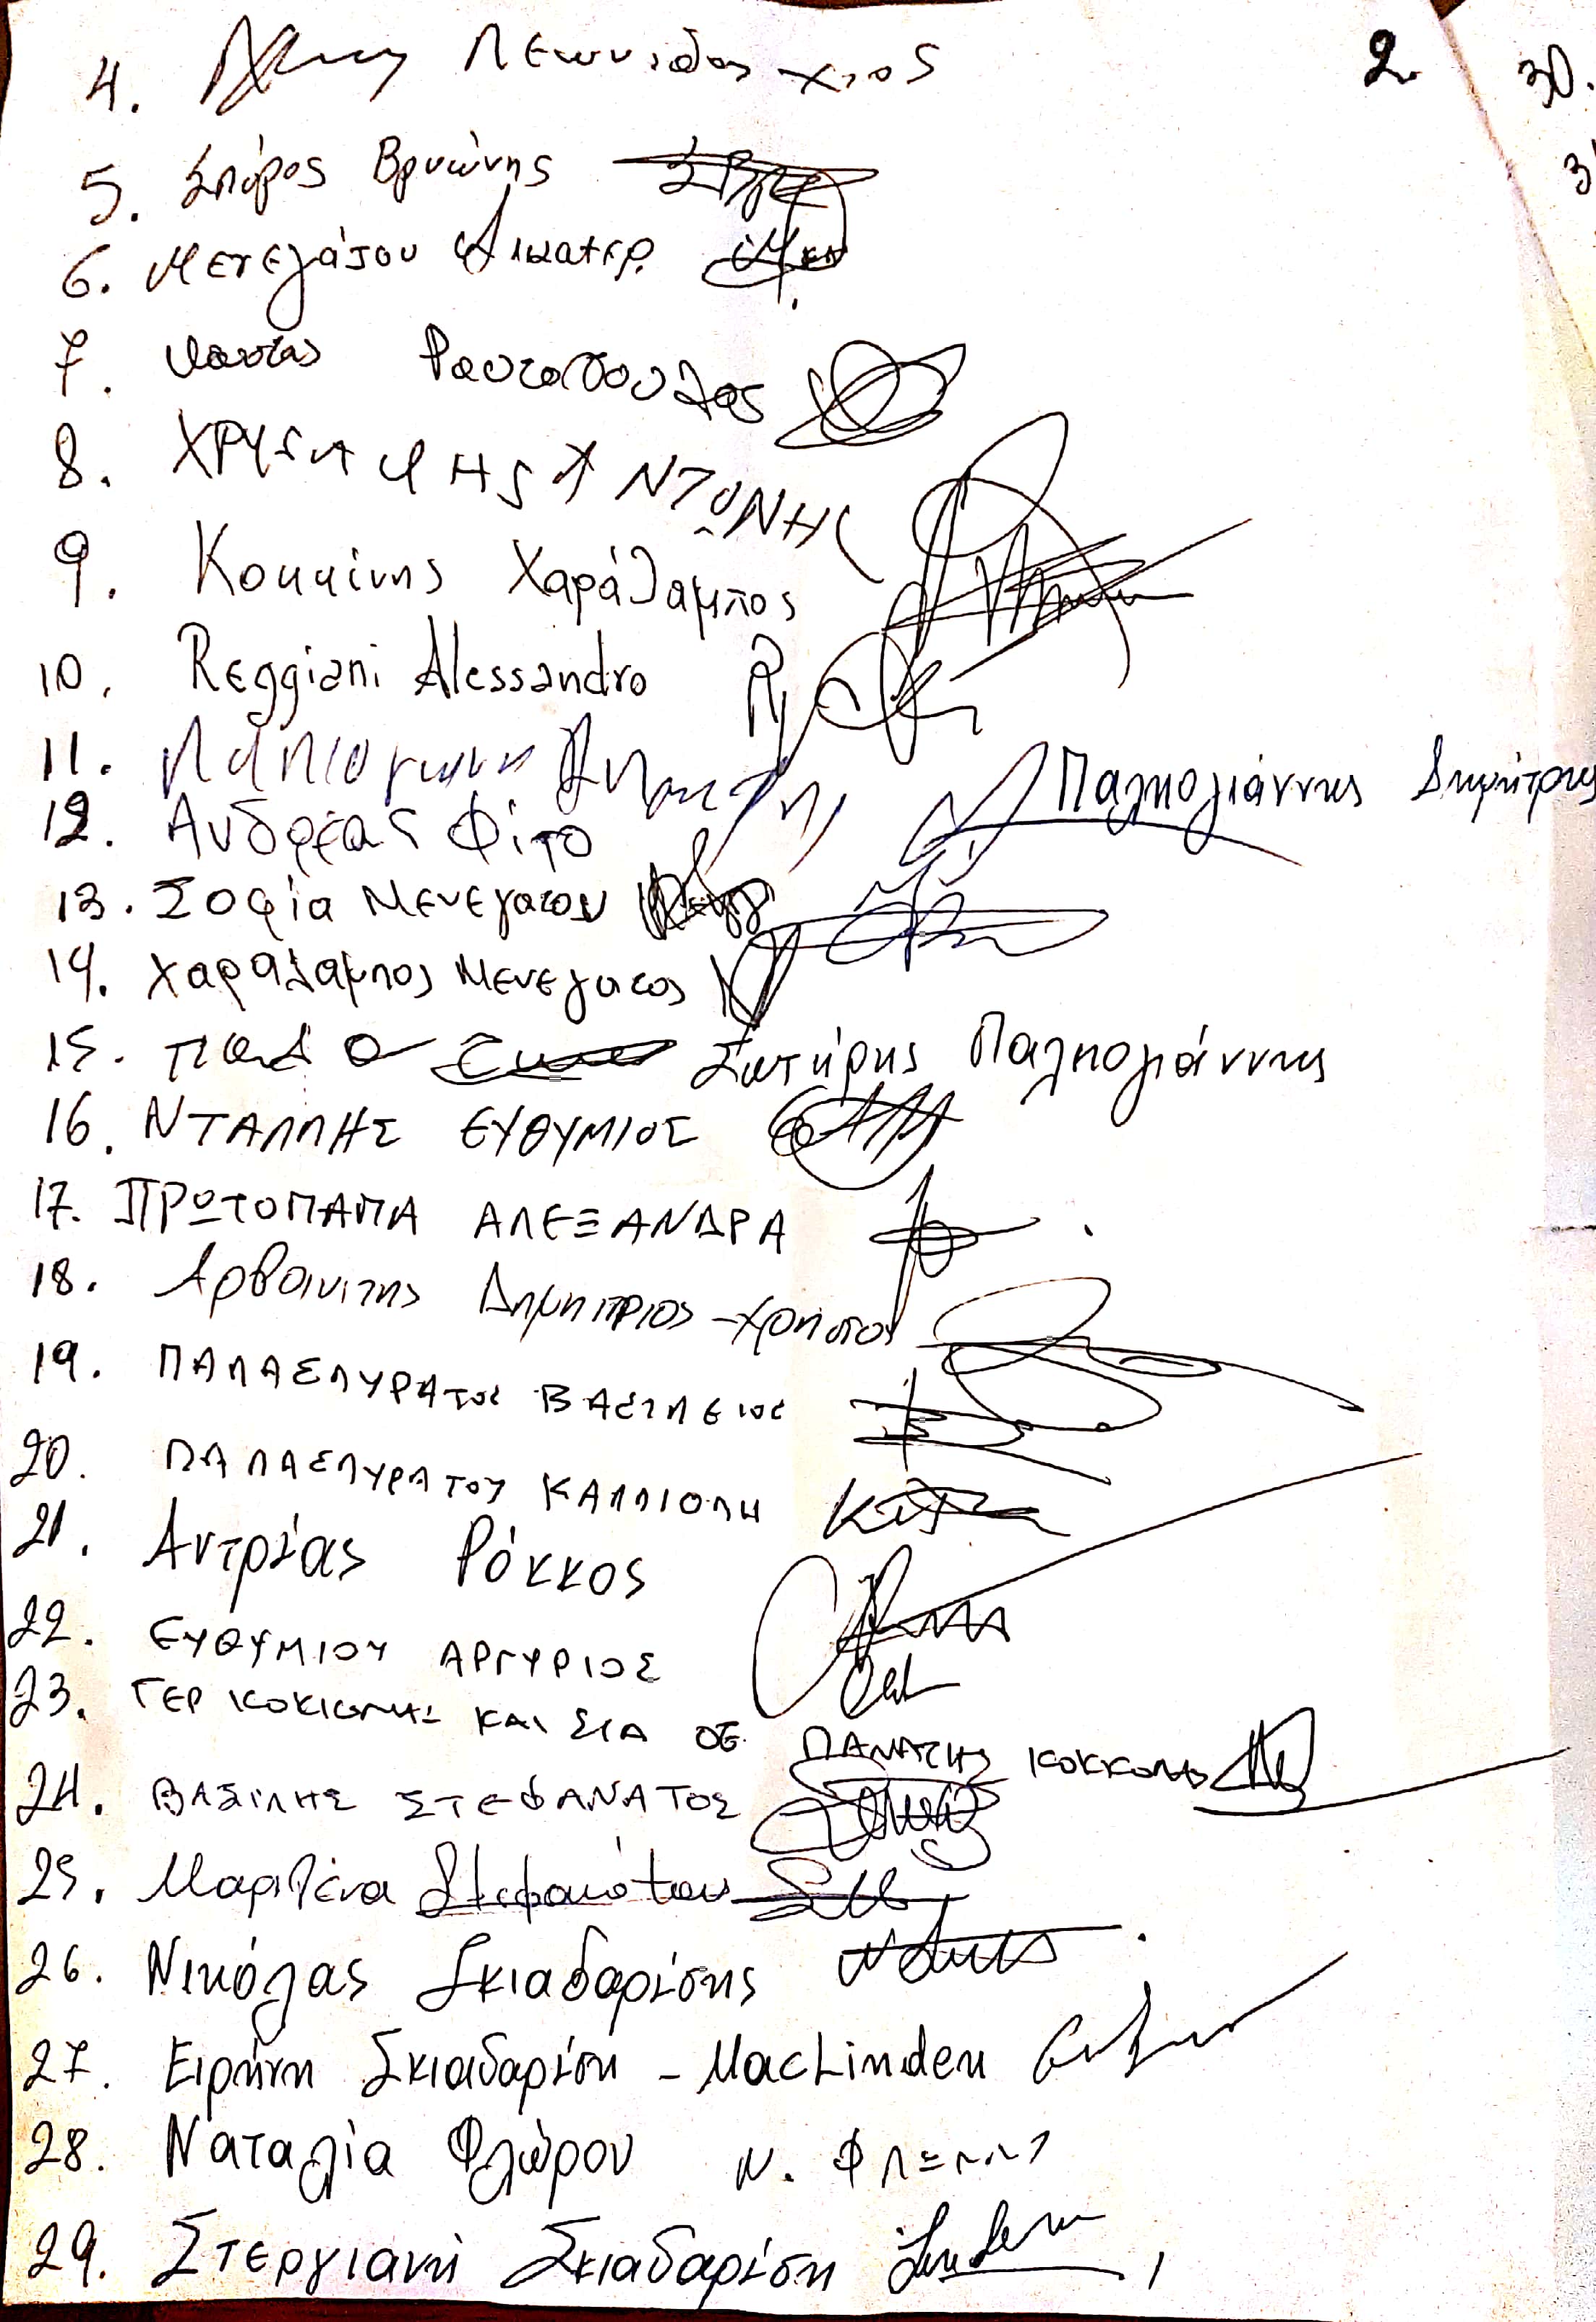 4. Λεωνιδας Χιος
2
30.
5. Σπύρος Βρυώνης
6. Μενεγάτου Αικατερ.
7. Κωστας Ραυτοπουλος
8. ΧΡΥΣΑΦΗΣ ΑΝΤΩΝΗΣ
9. Κοκκίνης Χαράλαμπος
10. Reggiani Alessandro
11. Παλιογιαννη Παληογιάννης Δημήτρης
12. Ανδρέας Φίτο
13. Σοφία Μενεγατου
14. Χαραλαμπος Μενεγατος
15. Σωτήρης Παληογιάννης
16. ΝΤΑΛΛΗΣ ΕΥΘΥΜΙΟΣ
17. ΠΡΩΤΟΠΑΠΑ ΑΛΕΞΑΝΔΡΑ
18. Αρβανιτης Δημητριος - Χρηστος
19. ΠΑΠΑΣΠΥΡΑΤΟΣ ΒΑΣΙΛΕΙΟΣ
20. ΠΑΠΑΣΠΥΡΑΤΟΥ ΚΑΛΛΙΟΠΗ
21. Αντρέας Ρόκκος
22. ΕΥΘΥΜΙΟΥ ΑΡΓΥΡΙΟΣ
23. ΓΕΡ ΚΟΚΚΟΛΗΣ ΚΑΙ ΣΙΑ ΟΕ ΠΑΝΑΓΗΣ ΚΟΚΚΟΛΗΣ
24. ΒΑΣΙΛΗΣ ΣΤΕΦΑΝΑΤΟΣ
25. Μαριλένα Στεφανάτου
26. Νικόλας Σκιαδαρέσης
27. Ειρήνη Σκιαδαρέση - MacLinden
28. Ναταλία Φλώρου Ν.
29. Στεργιανή Σκιαδαρέση